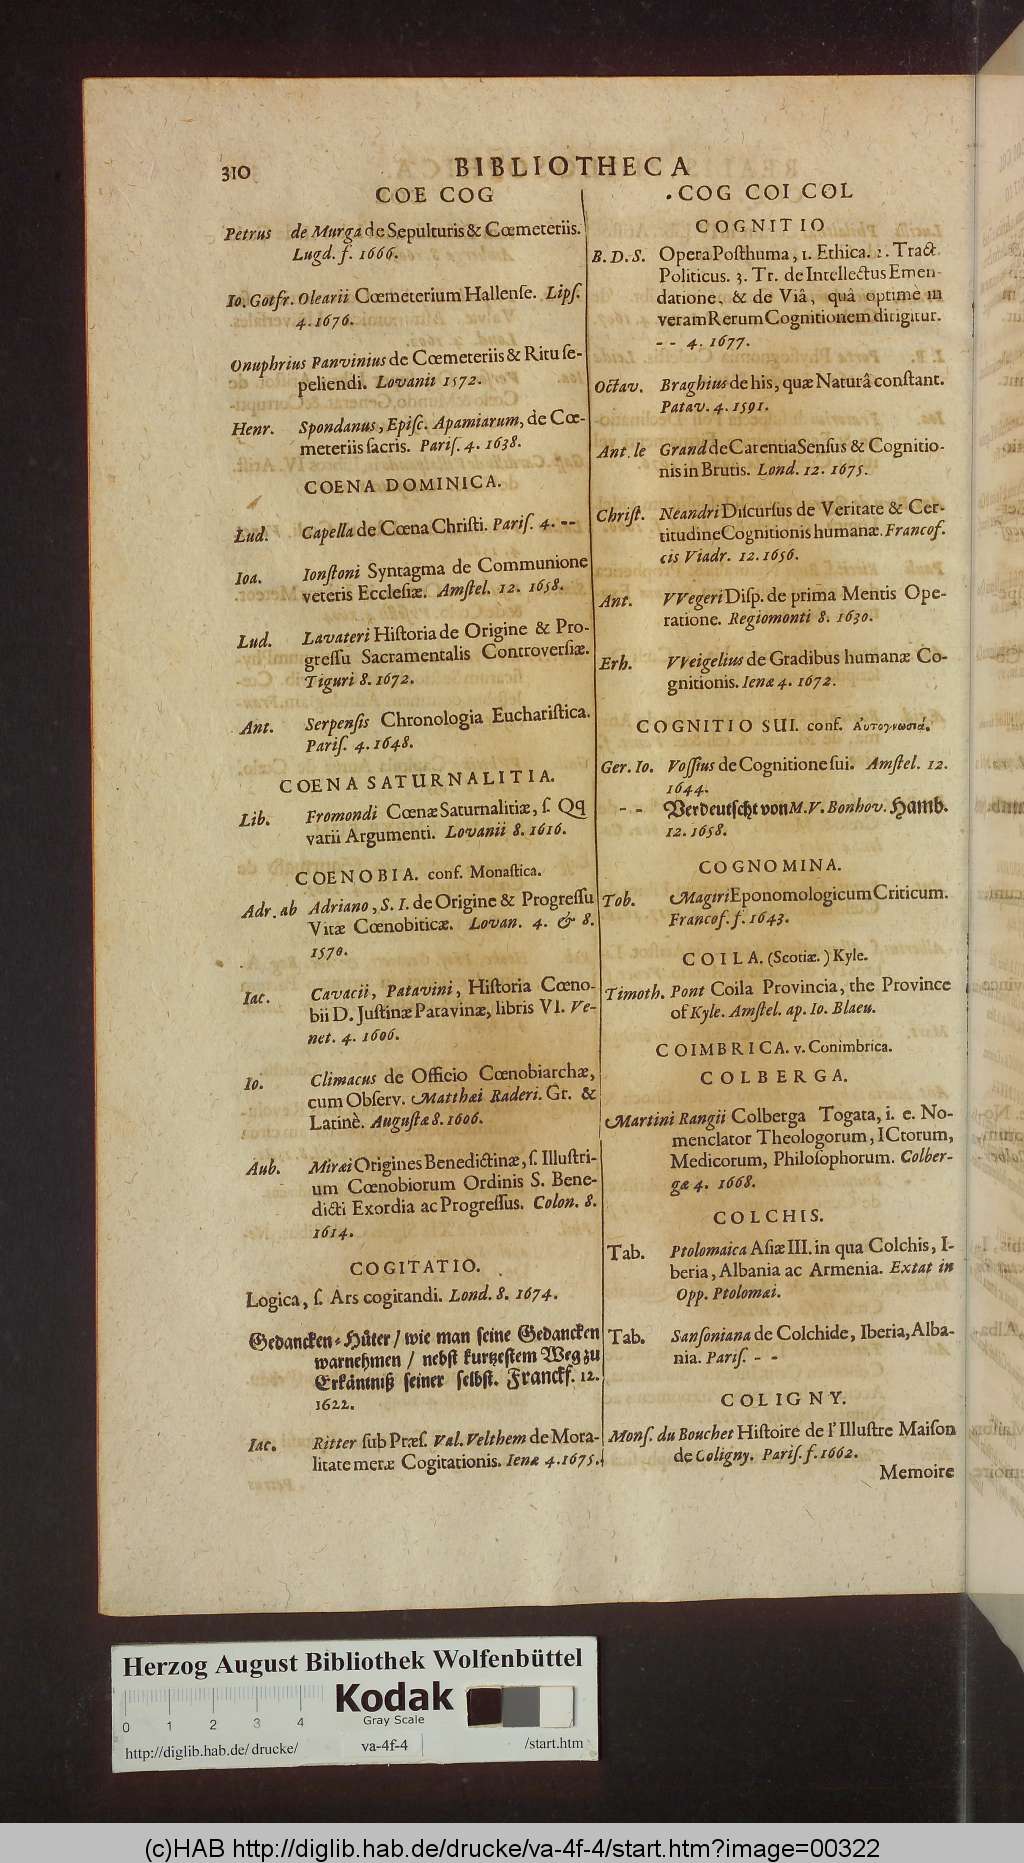 310
BIBLIOTHECA
COE COG
Petrus de Murga de Sepulturis & Cœmeteriis.
Lugd. f. 1666.
Io. Gotfr. Olearii Cœmeterium Hallenſe. Lipſ.
4. 1676.
Onuphrius Panvinius de Cœmeteriis & Ritu ſe-
peliendi. Lovanii 1572.
Henr. Spondanus, Epiſc. Apamiarum, de Cœ-
meteriis ſacris. Pariſ. 4. 1638.
COENA DOMINICA.
Lud. Capella de Cœna Chriſti. Pariſ. 4. --
Ioa. Ionſtoni Syntagma de Communione
veteris Eccleſiæ. Amſtel. 12. 1658.
Lud. Lavateri Hiſtoria de Origine & Pro-
greſſu Sacramentalis Controverſiæ.
Tiguri 8. 1672.
Ant. Serpenſis Chronologia Euchariſtica.
Pariſ. 4. 1648.
COENA SATURNALITIA.
Lib. Fromondi Cœnæ Saturnalitiæ, ſ. Qq
varii Argumenti. Lovanii 8. 1616.
COENOBIA. conf. Monaſtica.
Adr. ab Adriano, S. I. de Origine & Progreſſu
Vitæ Cœnobiticæ. Lovan. 4. & 8.
1570.
Iac. Cavacii, Patavini, Hiſtoria Cœno-
bii D. Juſtinæ Patavinæ, libris VI. Ve-
net. 4. 1606.
Io. Climacus de Officio Cœnobiarchæ,
cum Obſerv. Matthæi Raderi. Gr. &
Latinè. Auguſtæ 8. 1606.
Aub. Miræi Origines Benedictinæ, ſ. Illuſtri-
um Cœnobiorum Ordinis S. Bene-
dicti Exordia ac Progreſſus. Colon. 8.
1614.
COGITATIO.
Logica, ſ. Ars cogitandi. Lond. 8. 1674.
Gedancken-Hüter / wie man ſeine Gedancken
warnehmen / nebſt kurtzeſtem Weg zu
Erkäntniß ſeiner ſelbſt. Franckf. 12.
1622.
Iac. Ritter ſub Præſ. Val. Velthem de Mora-
litate meræ Cogitationis. Ienæ 4. 1675.
COG COI COL
COGNITIO
B. D. S. Opera Poſthuma, 1. Ethica. 2. Tract.
Politicus. 3. Tr. de Intellectus Emen-
datione, & de Viâ, quâ optimè in
veram Rerum Cognitionem dirigitur.
-- 4. 1677.
Octav. Braghius de his, quæ Naturâ conſtant.
Patav. 4. 1591.
Ant. le Grand de Carentia Senſus & Cognitio-
nis in Brutis. Lond. 12. 1675.
Chriſt. Neandri Diſcurſus de Veritate & Cer-
titudine Cognitionis humanæ. Francof.
cis Viadr. 12. 1656.
Ant. VVegeri Diſp. de prima Mentis Ope-
ratione. Regiomonti 8. 1630.
Erh. VVeigelius de Gradibus humanæ Co-
gnitionis. Ienæ 4. 1672.
COGNITIO SUI. conf. Αὐτογνωσιά.
Ger. Io. Voſſius de Cognitione ſui. Amſtel. 12.
1644.
-- Verdeutſcht von M. V. Bonhov. Hamb.
12. 1658.
COGNOMINA.
Tob. Magiri Eponomologicum Criticum.
Francof. f. 1643.
COILA. (Scotiæ.) Kyle.
Timoth. Pont Coila Provincia, the Province
of Kyle. Amſtel. ap. Io. Blaeu.
COIMBRICA. v. Conimbrica.
COLBERGA.
Martini Rangii Colberga Togata, i. e. No-
menclator Theologorum, ICtorum,
Medicorum, Philoſophorum. Colber-
gæ 4. 1668.
COLCHIS.
Tab. Ptolomaica Aſiæ III. in qua Colchis, I-
beria, Albania ac Armenia. Extat in
Opp. Ptolomæi.
Tab. Sanſoniana de Colchide, Iberia, Alba-
nia. Pariſ. - -
COLIGNY.
Monſ. du Bouchet Hiſtoire de l'Illuſtre Maiſon
de Coligny. Pariſ. f. 1662.
Memoire
Herzog August Bibliothek Wolfenbüttel
Kodak
Gray Scale
0 1 2 3 4
http://diglib.hab.de/drucke/ va-4f-4 /start.htm
(c)HAB http://diglib.hab.de/drucke/va-4f-4/start.htm?image=00322